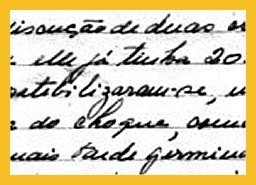 discussão de duas
elle já tinha 20.
patibilizaram-se,
do choque, com
mais tarde germin